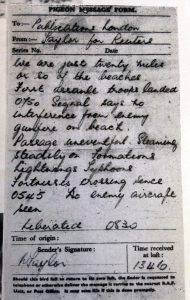 PIGEON MESSAGE FORM.
To:— Publications London
From:— Taylor for Reuters
Series No. Date
We are just twenty miles
or so off the beaches
First assault troops landed
0750 Signal says no
interference from enemy
gunfire on beach
Passage uneventful Steaming
steadily on Formations
Lightnings Typhoons
Fortresses crossing since
0545 No enemy aircraft
seen
Liberated 0830
Time of origin:
Sender's Signature:
Taylor
Time received
at loft:
1346
Should this bird fail to return to its own loft, the finder is requested to
telephone or otherwise deliver the message it carries to the nearest R.A.F.
Unit, or Post Office. It may save life if this is done promptly.